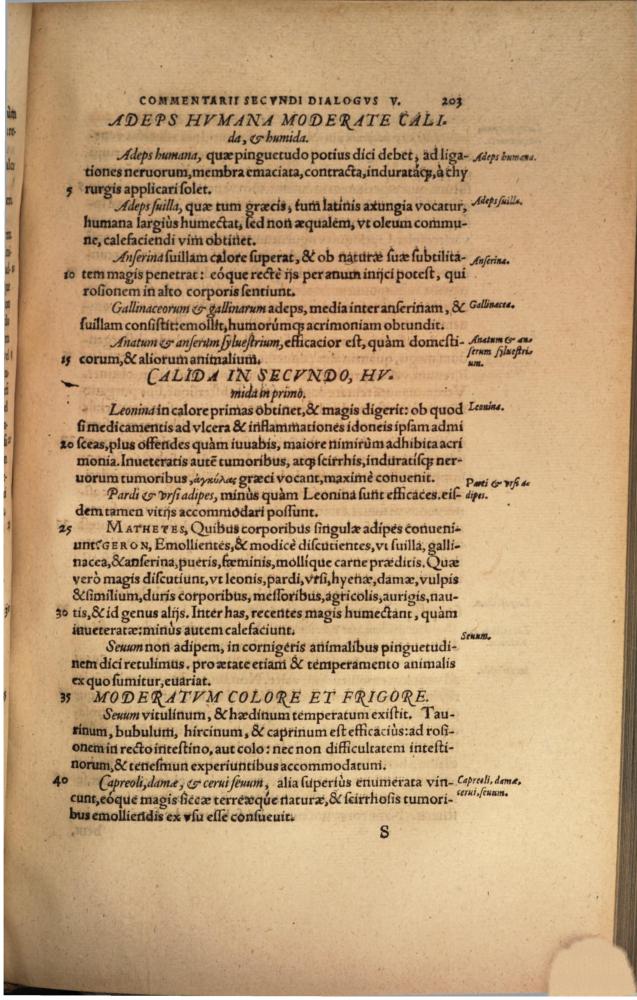 COMMENTARII SECVNDI DIALOGVS V. 203
ADEPS HVMANA MODERATE CALI-
da, & humida.
Adeps humana, quæ pinguetudo potius dici debet, ad liga- Adeps humana.
tiones neruorum, membra emaciata, contracta, induratáq;, à chy
5 rurgis applicari solet.
Adeps suilla, quæ tum græcis, tum latinis axungia vocatur, Adeps suilla.
humana largiùs humectat, sed non æqualem, vt oleum commu-
ne, calefaciendi vim obtinet.
Anserina suillam calore superat, & ob naturæ suæ subtilita- Anserina.
10 tem magis penetrat: eóque rectè ijs per anum inijci potest, qui
rosionem in alto corporis sentiunt.
Gallinaceorum & gallinarum adeps, media inter anserinam, & Gallinacea.
suillam consistit: emollit, humorúmq; acrimoniam obtundit.
Anatum & anserum syluestrium, efficacior est, quàm domesti- Anatum & an-
15 corum, & aliorum animalium. serum syluestri-
um.
CALIDA IN SECVNDO, HV-
mida in primo.
Leonina in calore primas obtinet, & magis digerit: ob quod Leonina.
si medicamentis ad vlcera & inflammationes idoneis ipsam admi
20 sceas, plus offendes quàm iuuabis, maiore nimirùm adhibita acri
monia. Inueteratis autē tumoribus, atq; scirrhis, induratisq; ner-
uorum tumoribus, ἀγκύλας græci vocant, maximè conuenit.
Pardi & vrsi adipes, minùs quàm Leonina sunt efficaces. eis- Pardi & vrsi a-
dem tamen vitijs accommodari possunt. dipes.
25 MATHETES, Quibus corporibus singulæ adipes conueni-
unt? GERON, Emollientes, & modicè discutientes, vt suilla, galli-
nacea, & anserina, pueris, fœminis, mollique carne præditis. Quæ
verò magis discutiunt, vt leonis, pardi, vrsi, hyenæ, damæ, vulpis
& similium, duris corporibus, messoribus, agricolis, aurigis, nau-
30 tis, & id genus alijs. Inter has, recentes magis humectant, quàm
inueteratæ: minùs autem calefaciunt.
Seuum non adipem, in cornigeris animalibus pinguetudi- Seuum.
nem dici retulimus. pro ætate etiam & temperamento animalis
ex quo sumitur, euariat.
35 MODERATVM COLORE ET FRIGORE.
Seuum vitulinum, & hædinum temperatum existit. Tau-
rinum, bubulum, hircinum, & caprinum est efficacius: ad rosi-
onem in recto intestino, aut colo: nec non difficultatem intesti-
norum, & tenesmun experiuntibus accommodatum.
40 Capreoli, damæ, & cerui seuum, alia superiùs enumerata vin- Capreoli, damæ,
cunt, eóque magis siccæ terreæque naturæ, & scirrhosis tumori- cerui, seuum.
bus emolliendis ex vsu esse consueuit.
S